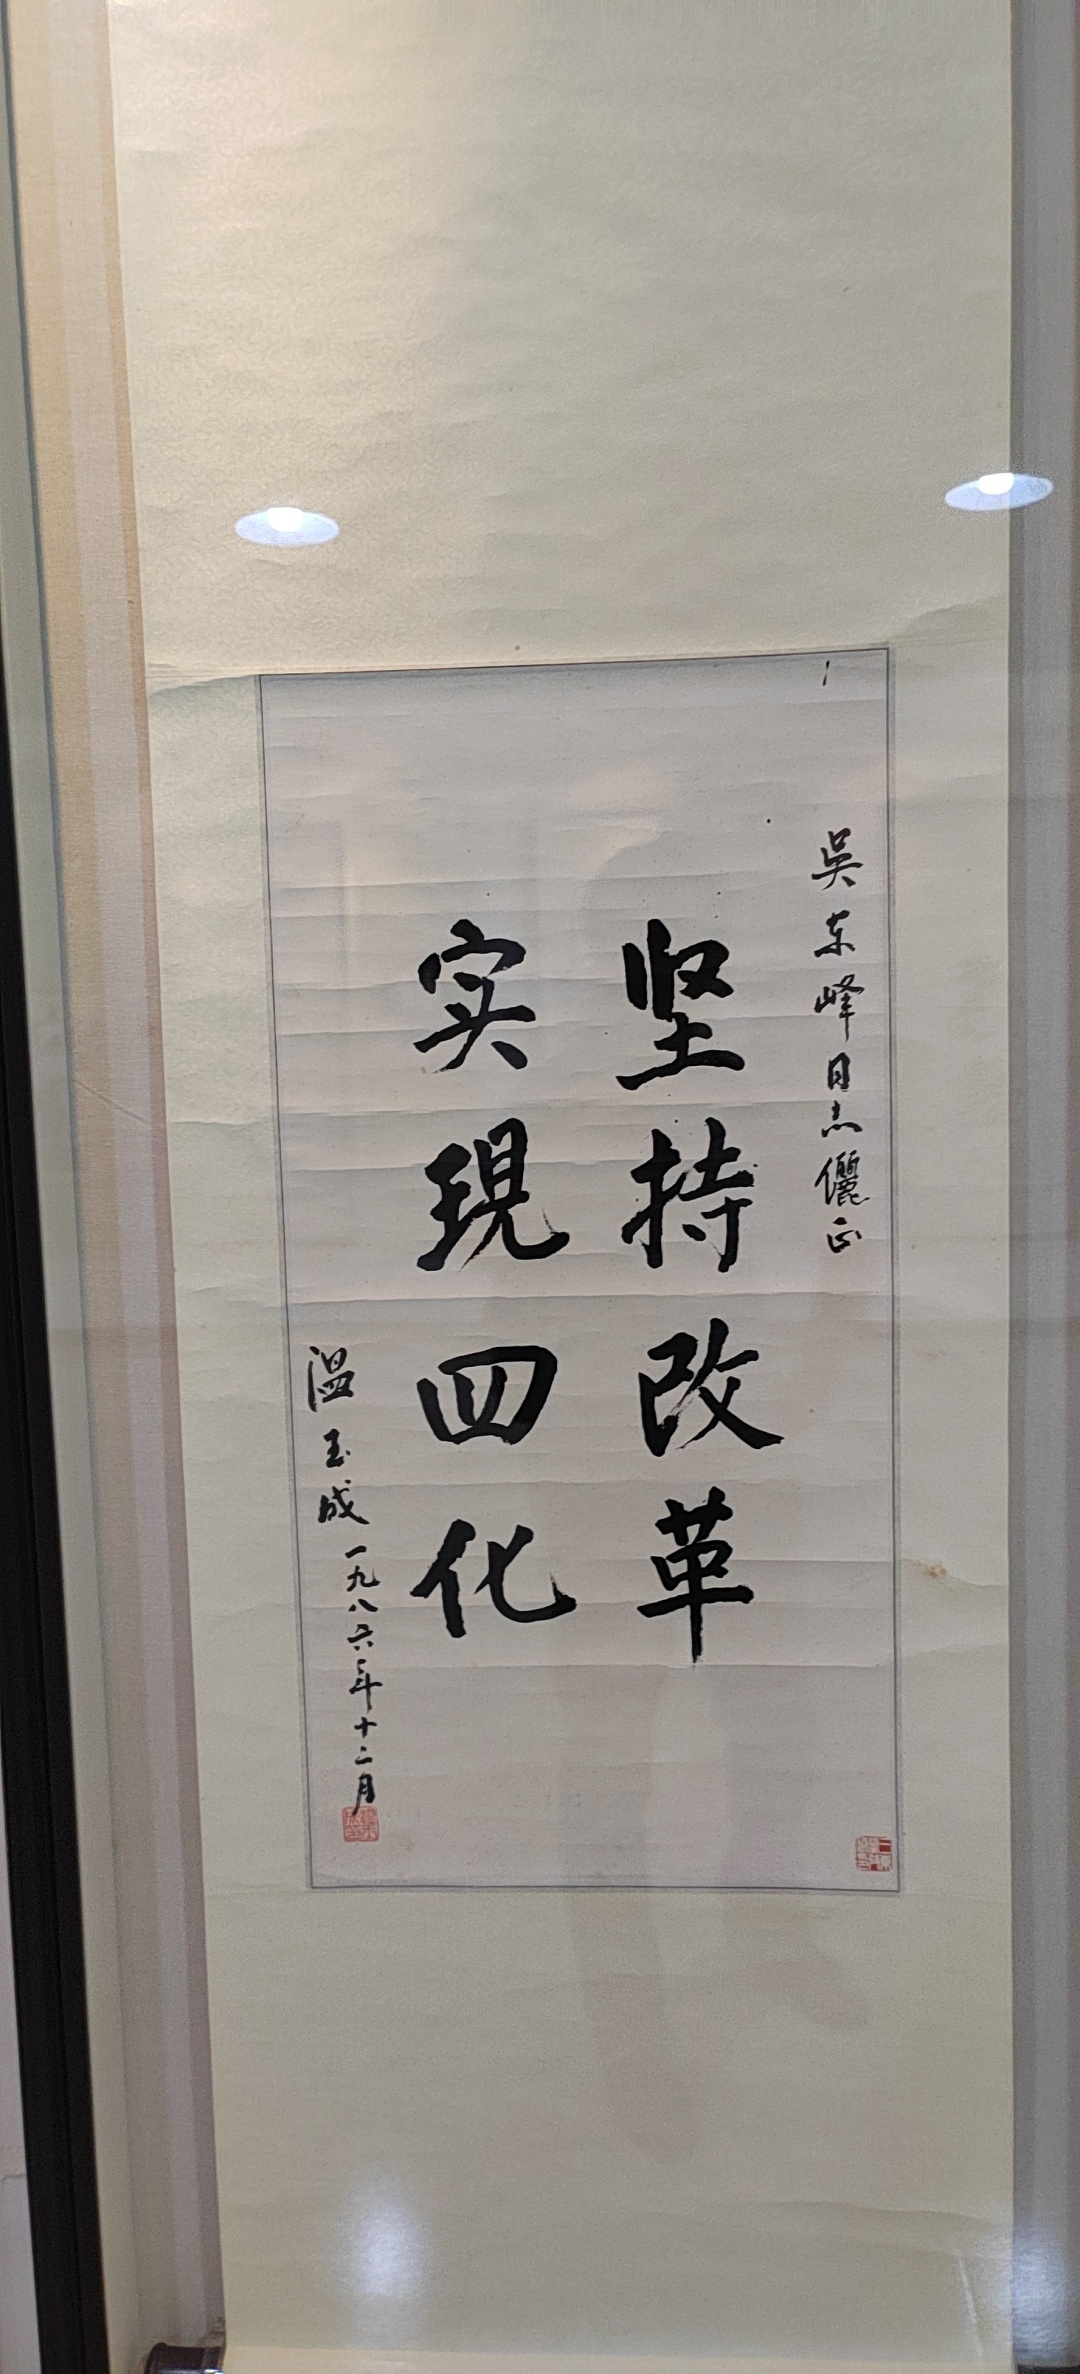 吴东峰同志儷正
坚持改革
实現四化
温玉成一九八六年十二月